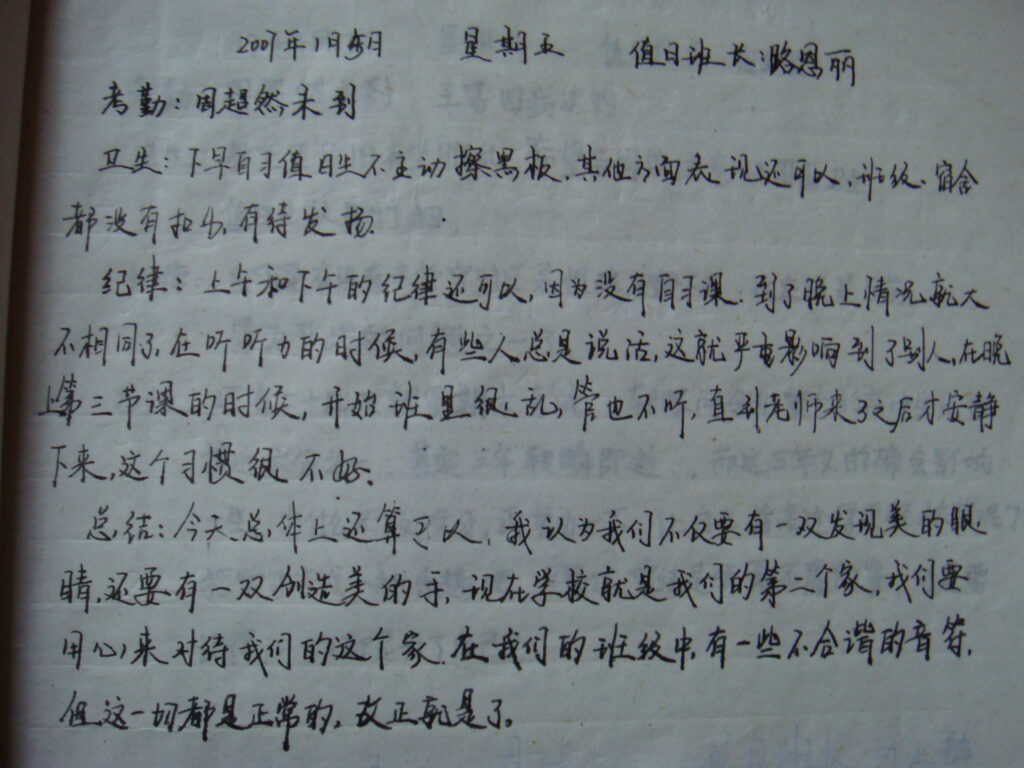 2007年1月5日 星期五 值日班长:路恩丽
考勤:周超然未到
卫生:下早自习值日生不主动擦黑板.其他方面表现还可以,班级.宿舍
都没有扣分,有待发扬.
纪律:上午和下午的纪律还可以,因为没有自习课.到了晚上情况就大
不相同了,在听听力的时候,有些人总是说话,这就严重影响到了别人,在晚
上第三节课的时候,开始班里很乱,管也不听,直到老师来了之后才安静
下来,这个习惯很不好.
总结:今天总体上还算可以,我认为我们不仅要有一双发现美的眼
睛,还要有一双创造美的手,现在学校就是我们的第二个家,我们要
用心来对待我们的这个家.在我们的班级中,有一些不合谐的音符,
但这一切都是正常的,改正就是了。